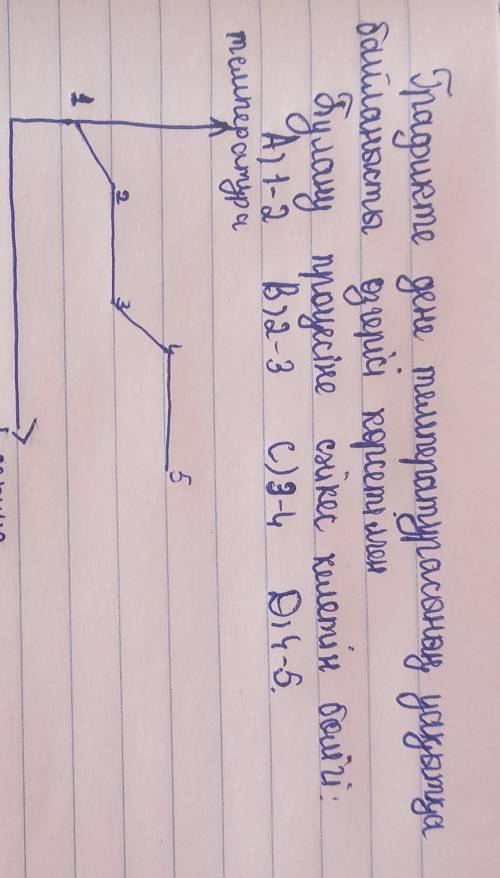 Графикте дене температурасының уақытқа
байланысты өзгерісі көрсетілген
Булану процесіне сәйкес келетін бөлігі:
A) 1-2 B) 2-3 C) 3-4 D) 4-5.
температура
1
2
3
4
5